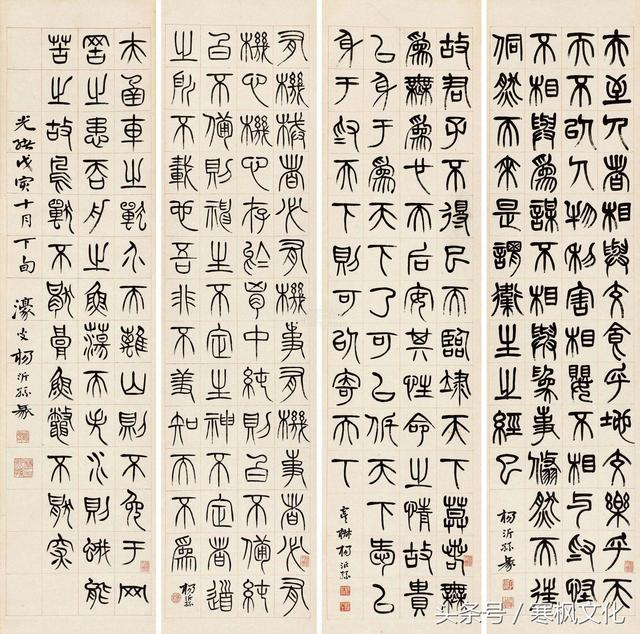 夫至人者相與交食乎地交樂乎天
而不以人物利害相攖不相与為怪
不相與為謀不相與為事翛然而往
侗然而來是謂衛生之經已
楊沂孫篆
故君子不得已而臨蒞天下莫若無
為無為也而后安其性命之情故貴
以身于為天下乃可以託天下愛以
身于為天下則可以寄天下
楊沂孫
有機械者必有機事有機事者必有
機心機心存於胸中則純白不備純
白不備則神生不定神生不定者道
之所不載也吾非不羞知而不為
楊沂孫
夫函車之獸介而離山則不免于网
罟之患吞舟之魚蕩而失水則蟻能
苦之故鳥獸不厭高魚鱉不厭深
光緒戊寅十月下旬 濠叟楊沂孫篆
头条号/寒枫文化